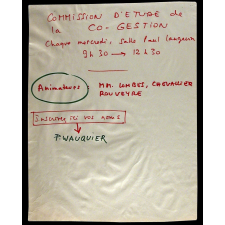 COMMISSION D'ETUDE de
la CO-GESTION
Chaque mercredi, salle Paul Langevin
9h30 → 12h30
Animateurs : MM. COMBES, CHEVALLIER
ROUVEYRE
Inscrivez ici vos noms
P. WAUQUIER